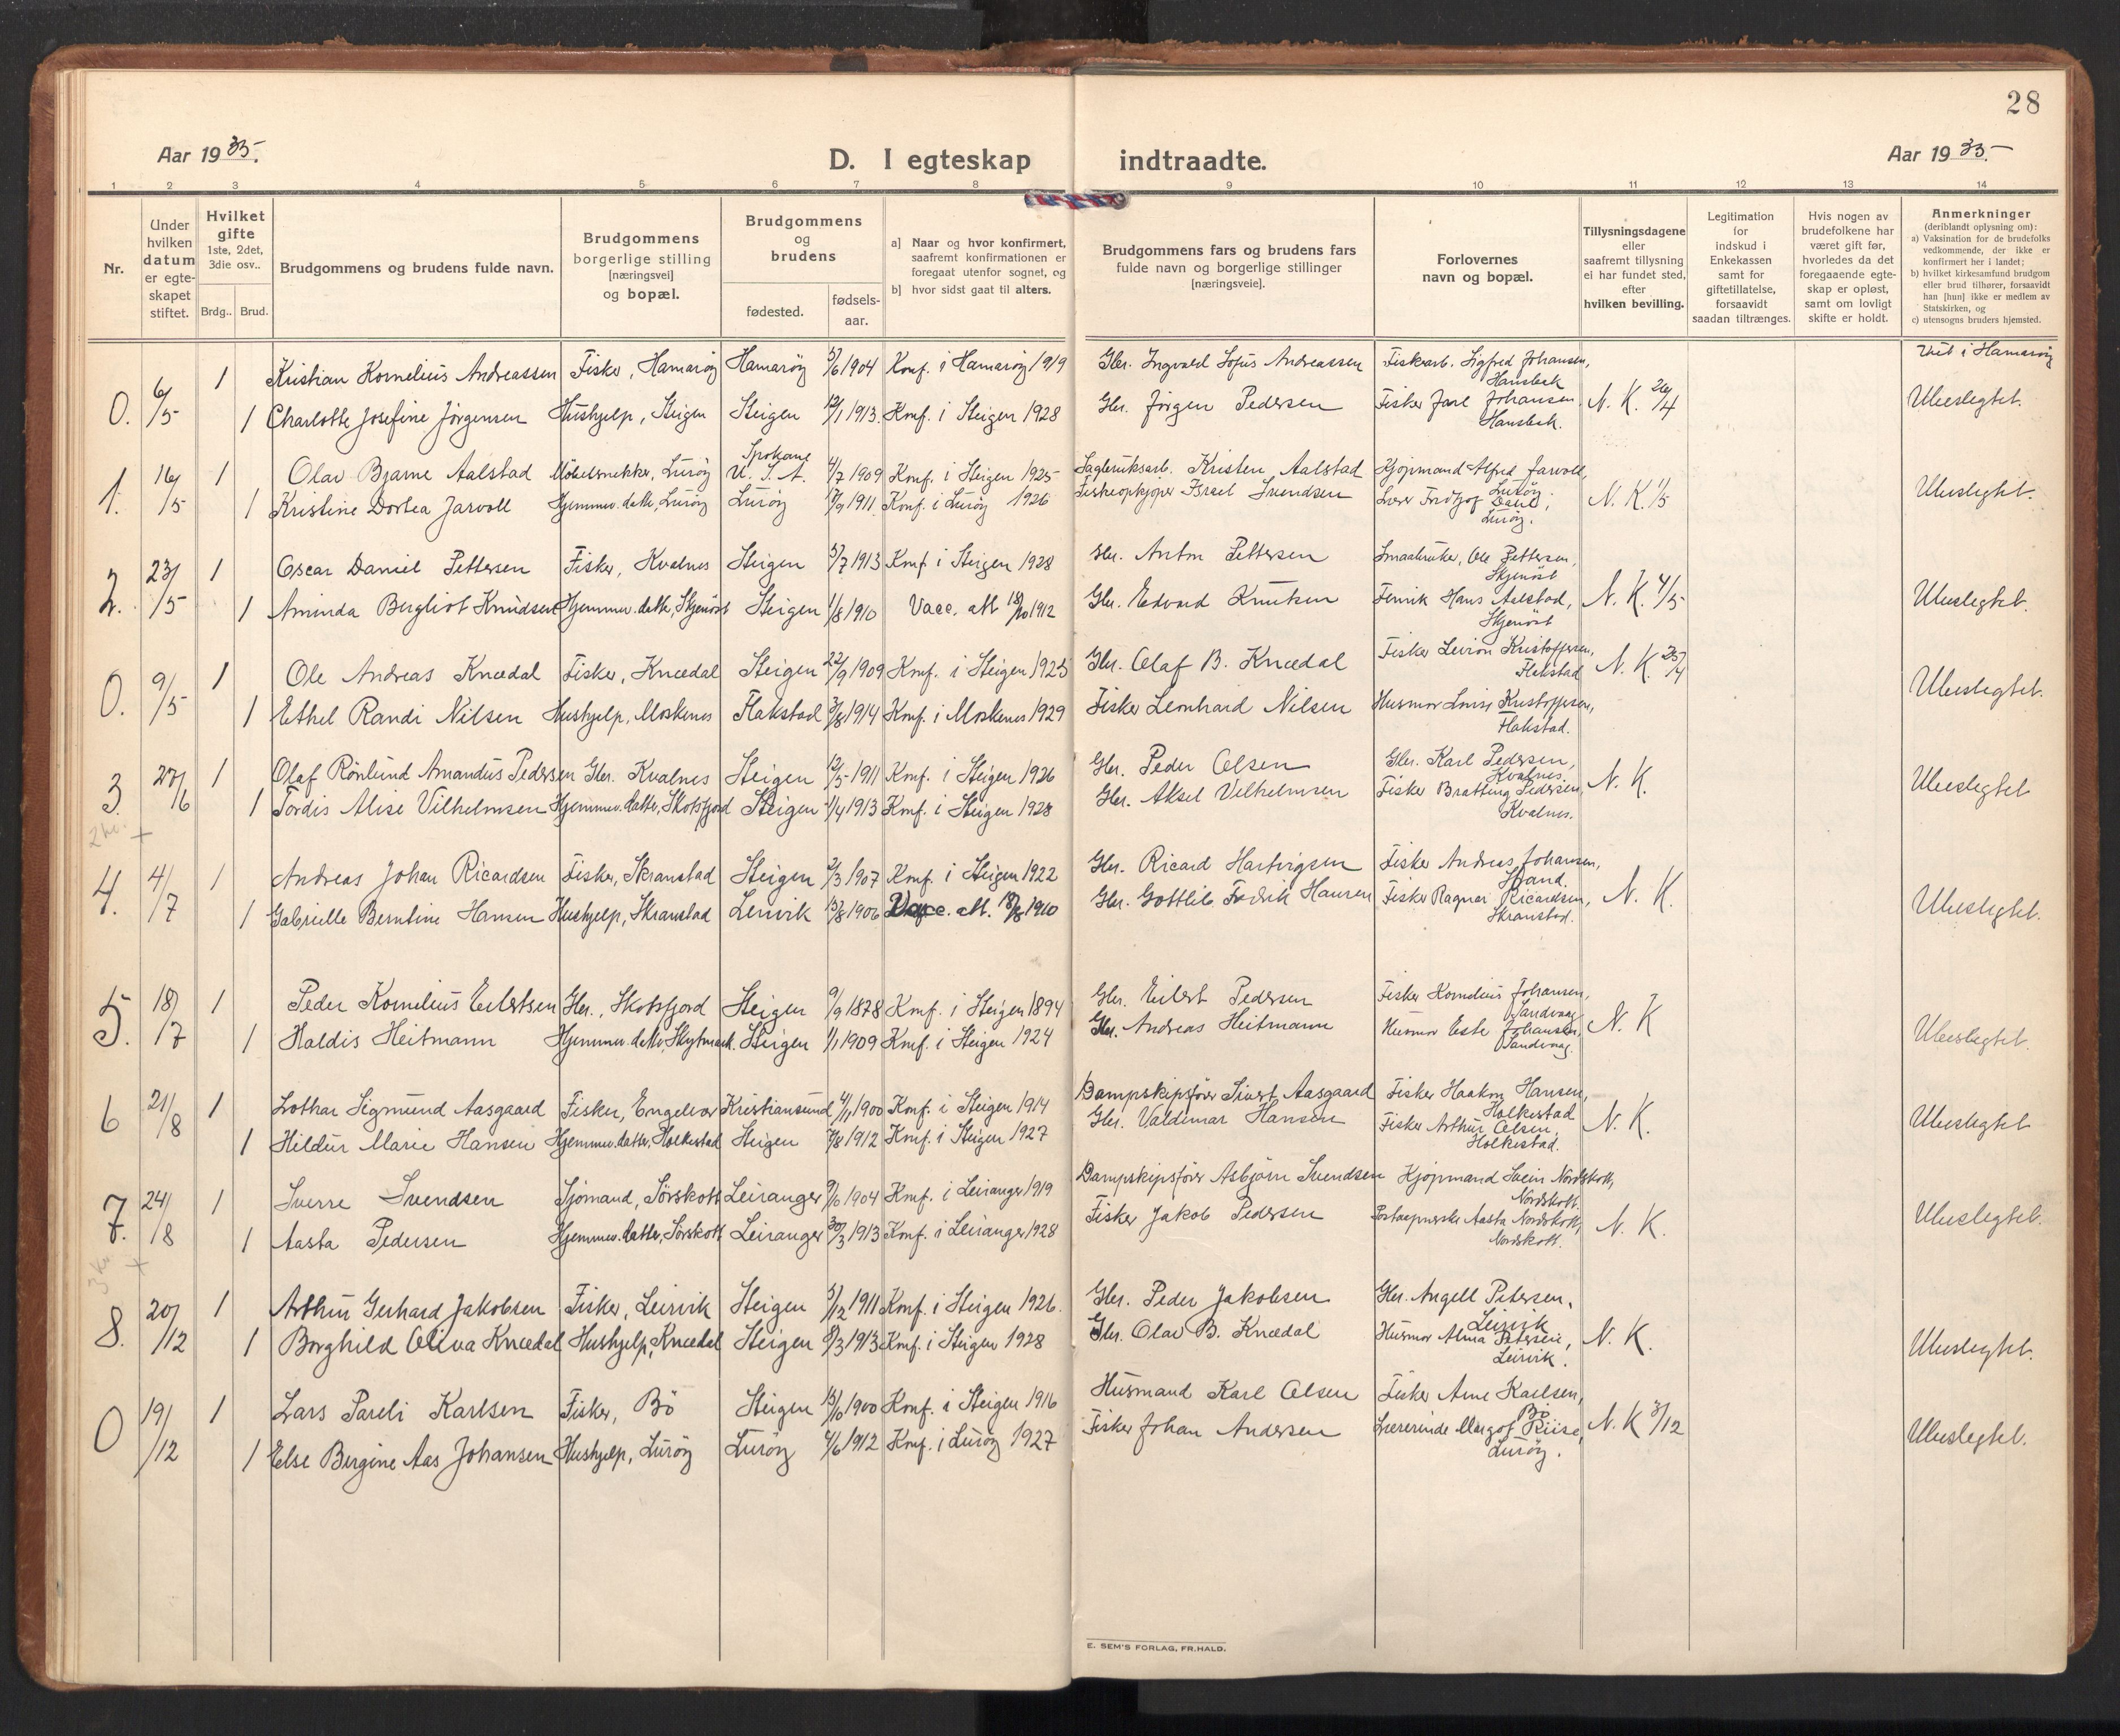 28
Aar 1935.
D. I egteskap indtraadte.
Aar 1935.
1 2 3 4 5 6 7 8 9 10 11 12 13 14
Nr.
Under hvilken datum er egte- skapet stiftet.
Hvilket gifte 1ste, 2det, 3die osv..
Brdg.. Brud.
Brudgommens og brudens fulde navn.
Brudgommens borgerlige stilling [næringsvei] og bopæl.
Brudgommens og brudens
fødested.
fødsels- aar.
a] Naar og hvor konfirmert, saafremt konfirmationen er foregaat utenfor sognet, og
b] hvor sidst gaat til alters.
Brudgommens fars og brudens fars fulde navn og borgerlige stillinger [næringsveie].
Forlovernes navn og bopæl.
Tillysningsdagene eller saafremt tillysning ei har fundet sted, efter hvilken bevilling.
Legitimation for indskud i Enkekassen samt for giftetillatelse, forsaavidt saadan tiltrænges.
Hvis nogen av brudefolkene har været gift før, hvorledes da det foregaaende egte- skap er opløst, samt om lovligt skifte er holdt.
Anmerkninger (deriblandt oplysning om):
a) Vaksination for de brudefolks vedkommende, der ikke er konfirmert her i landet;
b) hvilket kirkesamfund brudgom eller brud tilhører, forsaavidt han [hun] ikke er medlem av Statskirken, og
c) utensogns bruders hjemsted.
0. 6/5 1 Kristian Kornelius Andreassen Fisker, Hamarøy Hamarøy 5/6 1904 Konf. i Hamarøy 1919 Gbr. Ingvald Sofus Andreassen Fiskearb. Sigfred Johansen, Hansbak N. K. 26/4 Viet i Hamarøy
1 Charlotte Josefine Jørgensen Hushjelp, Steigen Steigen 12/1 1913. Konf. i Steigen 1928 Gbr. Jørgen Pedersen Fisker Jarl Johansen Hansbak. Ubeslegtet.
1. 16/5 1 Olav Bjarne Aalstad Møbelsnekker, Lurøy Spokane U. S. A. 4/7 1909 Konf. i Steigen 1925 Sagbruksarb. Kristen Aalstad Kjøpmand Alfred Jarvoll, Lurøy N. K. 1/5 Ubeslegtet.
1 Kristine Dortea Jarvoll Hjemmev. datter, Lurøy Lurøy 1911 Konf. i Lurøy 1926 Fiskeopkjøper Israel Svendsen Lærer Fridtjof Lurøy.
2. 23/5 1 Oscar Daniel Pettersen Fisker, Kvalnes Steigen 5/7 1913 Konf i Steigen 1928 Gbr. Anton Pettersen Smaabruker, Ole Pettersen, Skjenøst N. K. 4/5 Ubeslegtet.
1 Aminda Bergliot Knudsen Hjemmev. datter, Skjenøst Steigen 1/8 1910 Vacc. att 18/10 1912 Gbr. Edvard Knutsen Hans Aalstad, Skjenøst
0. 9/5 1 Ole Andreas Knædal Fisker, Knædal Steigen 22/9 1909 Konf. i Steigen 1925 Gbr. Olaf B. Knædal Fisker Kristoffersen, Flakstad N. K. 25/4 Ubeslegtet.
1 Ethel Randi Nilsen Hushjelp, Moskenes Flakstad 3/8 1914 Konf. i Moskenes 1929 Fisker Leonhard Nilsen Husmor Lovise Kristoffersen, Flakstad.
3. 27/6 1 Olaf Rønlund Amandus Pedersen Gbr. Kvalnes Steigen 12/5 1911 Konf. i Steigen 1926 Gbr. Peder Olsen Gbr. Karl Pedersen, Kvalnes. N. K. Ubeslegtet
2 kr. + 1 Tordis Alise Vilhelmsen Hjemmev. datter, Skotsfjord Steigen 1/4 1913 Konf. i Steigen 1928 Gbr. Aksel Vilhelmsen Fisker Bratting Pedersen Kvalnes.
4. 4/7 1 Andreas Johan Ricardsen Fisker, Skranstad Steigen 2/3 1907 Konf. i Steigen 1922 Gbr. Ricard Hartvigsen Fisker Andreas Johansen, Strand. N. K. Ubeslegtet.
1 Gabrielle Berntine Hansen Hushjelp, Skranstad Lenvik 13/8 1906 Vacc. att. 1910 Gbr. Gottlib Fredrik Hansen Fisker Ragnar Ricardsen, Skranstad.
5. 18/7 1 Peder Kornelius Eilertsen Gbr., Skotsfjord Steigen 9/9 1878 Konf. i Steigen 1894 Gbr. Eilert Pedersen Fisker Kornelius Johansen, Sandvaag N. K Ubeslegtet.
1 Haldis Heitmann Hjemmev. datter, Skytmark. Steigen 1/1 1909 Konf. i Steigen 1924 Gbr. Andreas Heitmann Husmor Johansen, Sandvaag.
6 21/8 1 Lothar Sigmund Aasgaard Fisker, Engeløy Kristiansund 4/11 1900 Konf. i Steigen 1914 Dampskipsfører Sivert Aasgaard Fisker Haakon Hansen, Holkestad N. K. Ubeslegtet
1 Hildur Marie Hansen Hjemmev. datter, Holkestad Steigen 7/8 1912 Konf. i Steigen 1927 Gbr. Valdemar Hansen Fisker Arthur Olsen, Holkestad.
7. 24/8 1 Sverre Svendsen Sjømand, Sørskott Leiranger 9/10 1904 Konf. i Leiranger 1919 Dampskipsfører Asbjørn Svendsen Kjøpmand Svein Nordskott, Nordskott. N. K. Ubeslegtet.
3 kr + 1 Aasta Pedersen Hjemmev. datter, Sørskott Leiranger 30/3 1913 Konf. i Leiranger 1928 Fisker Jakob Pedersen Aasta Nordskott, Nordskott.
8. 20/12 1 Arthur Gerhard Jakobsen Fisker, Leirvik Steigen 5/12 1911 Konf. i Steigen 1926. Gbr. Peder Jakobsen Gbr. Angell Petersen, Leirvik N. K. Ubeslegtet.
1 Borghild Oliva Knædal Hushjelp, Knædal Steigen 8/3 1913 Konf. i Steigen 1928 Gbr. Olav B. Knædal Husmor Alma Petersen, Leirvik.
0 19/12 1 Lars Pareli Karlsen Fisker, Bø Steigen 13/10 1900 Konf. i Steigen 1916 Husmand Karl Olsen Fisker Arne Karlsen, Bø N. K 3/12 Ubeslegtet.
1 Else Bergine Aas Johansen Hushjelp, Lurøy Lurøy 4/6 1912 Konf. i Lurøy 1927 Fisker Johan Andersen Lærerinde Margot Riise, Lurøy.
E. SEM'S FORLAG, FR.HALD.